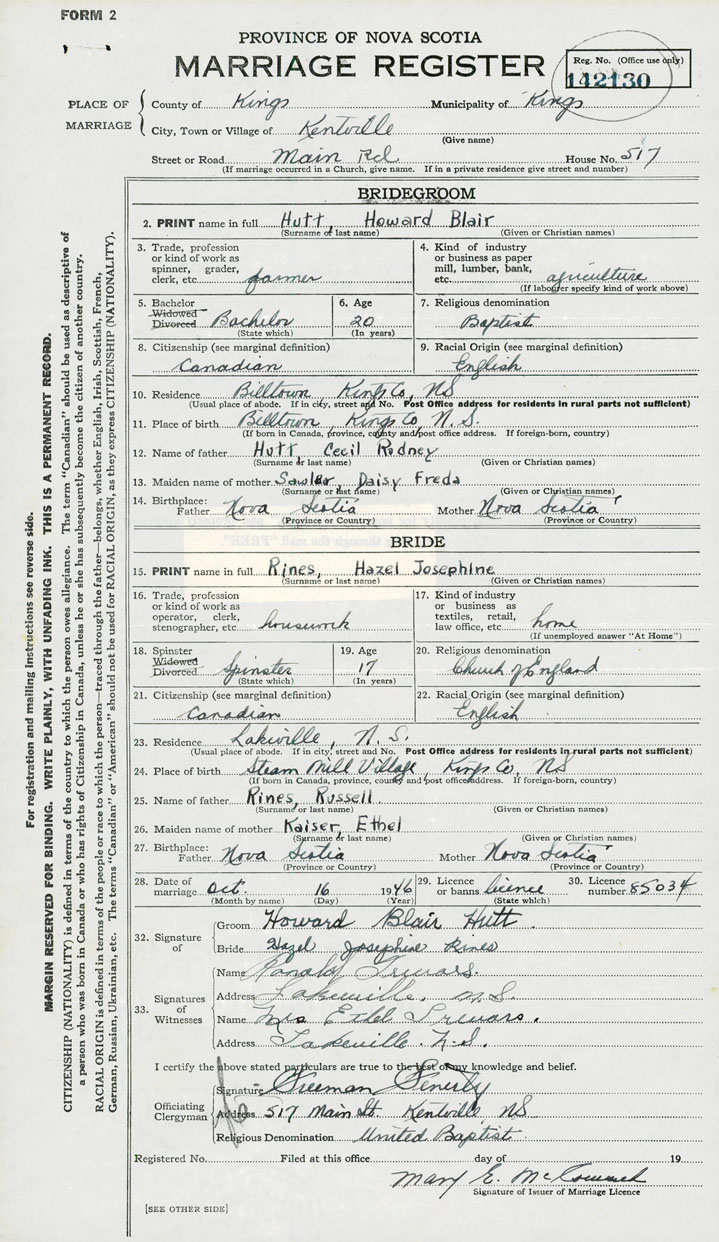 FORM 2
PROVINCE OF NOVA SCOTIA
MARRIAGE REGISTER
Reg. No. (Office use only)
142130
PLACE OF MARRIAGE
County of Kings Municipality of Kings
City, Town or Village of Kentville
(Give name)
Street or Road Main Rd House No. 517
(If marriage occurred in a Church, give name. If in a private residence give street and number)
BRIDEGROOM
2. PRINT name in full Hutt, Howard Blair
(Surname or last name) (Given or Christian names)
3. Trade, profession or kind of work as spinner, grader, clerk, etc. farmer
4. Kind of industry or business as paper mill, lumber, bank, etc. agriculture
(If laborer specify kind of work above)
5. Bachelor Widowed Divorced Bachelor
(State which)
6. Age 20
(In years)
7. Religious denomination
Baptist
8. Citizenship (see marginal definition)
Canadian
9. Racial Origin (see marginal definition)
English
10. Residence Billtown Kings Co, NS
(Usual place of abode. If in city, street and No. Post Office address for residents in rural parts not sufficient)
11. Place of birth Billtown, Kings Co, N.S.
(If born in Canada, province, county and post office address. If foreign-born, country)
12. Name of father Hutt, Cecil Rodney
(Surname or last name) (Given or Christian names)
13. Maiden name of mother Sawler, Daisy Freda
(Surname or last name) (Given or Christian names)
14. Birthplace: Father Nova Scotia Mother Nova Scotia
(Province or Country) (Province or Country)
BRIDE
15. PRINT name in full Rines, Hazel Josephine
(Surname or last name) (Given or Christian names)
16. Trade, profession or kind of work as operator, clerk, stenographer, etc. housework
17. Kind of industry or business as textiles, retail, law office, etc. home
(If unemployed answer "At Home")
18. Spinster Widowed Divorced Spinster
(State which)
19. Age 17
(In years)
20. Religious denomination
Church of England
21. Citizenship (see marginal definition)
Canadian
22. Racial Origin (see marginal definition)
English
23. Residence Lakeville, N.S.
(Usual place of abode. If in city, street and No. Post Office address for residents in rural parts not sufficient)
24. Place of birth Steam Mill Village, Kings Co, NS
(If born in Canada, province, county and post office address. If foreign-born, country)
25. Name of father Rines, Russell
(Surname or last name) (Given or Christian names)
26. Maiden name of mother Kaiser, Ethel
(Surname or last name) (Given or Christian names)
27. Birthplace: Father Nova Scotia Mother Nova Scotia
(Province or Country) (Province or Country)
28. Date of marriage Oct. 16 1946
(Month by name) (Day) (Year)
29. Licence or banns licence
(State which)
30. Licence number 85034
32. Signature of
Groom Howard Blair Hutt
Bride Hazel Josephine Rines
33. Signatures of Witnesses
Name
Address Lakeville, N.S.
Name Mrs Ethel
Address Lakeville. N.S.
I certify the above stated particulars are true to the best of my knowledge and belief.
Officiating Clergyman
Signature Freeman Fenerty
Address 517 Main St. Kentville NS
Religious Denomination United Baptist
Registered No. Filed at this office day of 19
Mary E.
Signature of Issuer of Marriage Licence
[SEE OTHER SIDE]
For registration and mailing instructions see reverse side.
MARGIN RESERVED FOR BINDING. WRITE PLAINLY, WITH UNFADING INK. THIS IS A PERMANENT RECORD.
CITIZENSHIP (NATIONALITY) is defined in terms of the country to which the person owes allegiance. The term "Canadian" should be used as descriptive of
a person who was born in Canada or who has rights of Citizenship in Canada, unless he or she has subsequently become the citizen of another country.
RACIAL ORIGIN is defined in terms of the people or race to which the person—traced through the father—belongs, whether English, Irish, Scottish, French,
German, Russian, Ukrainian, etc. The terms "Canadian" or "American" should not be used for RACIAL ORIGIN, as they express CITIZENSHIP (NATIONALITY).